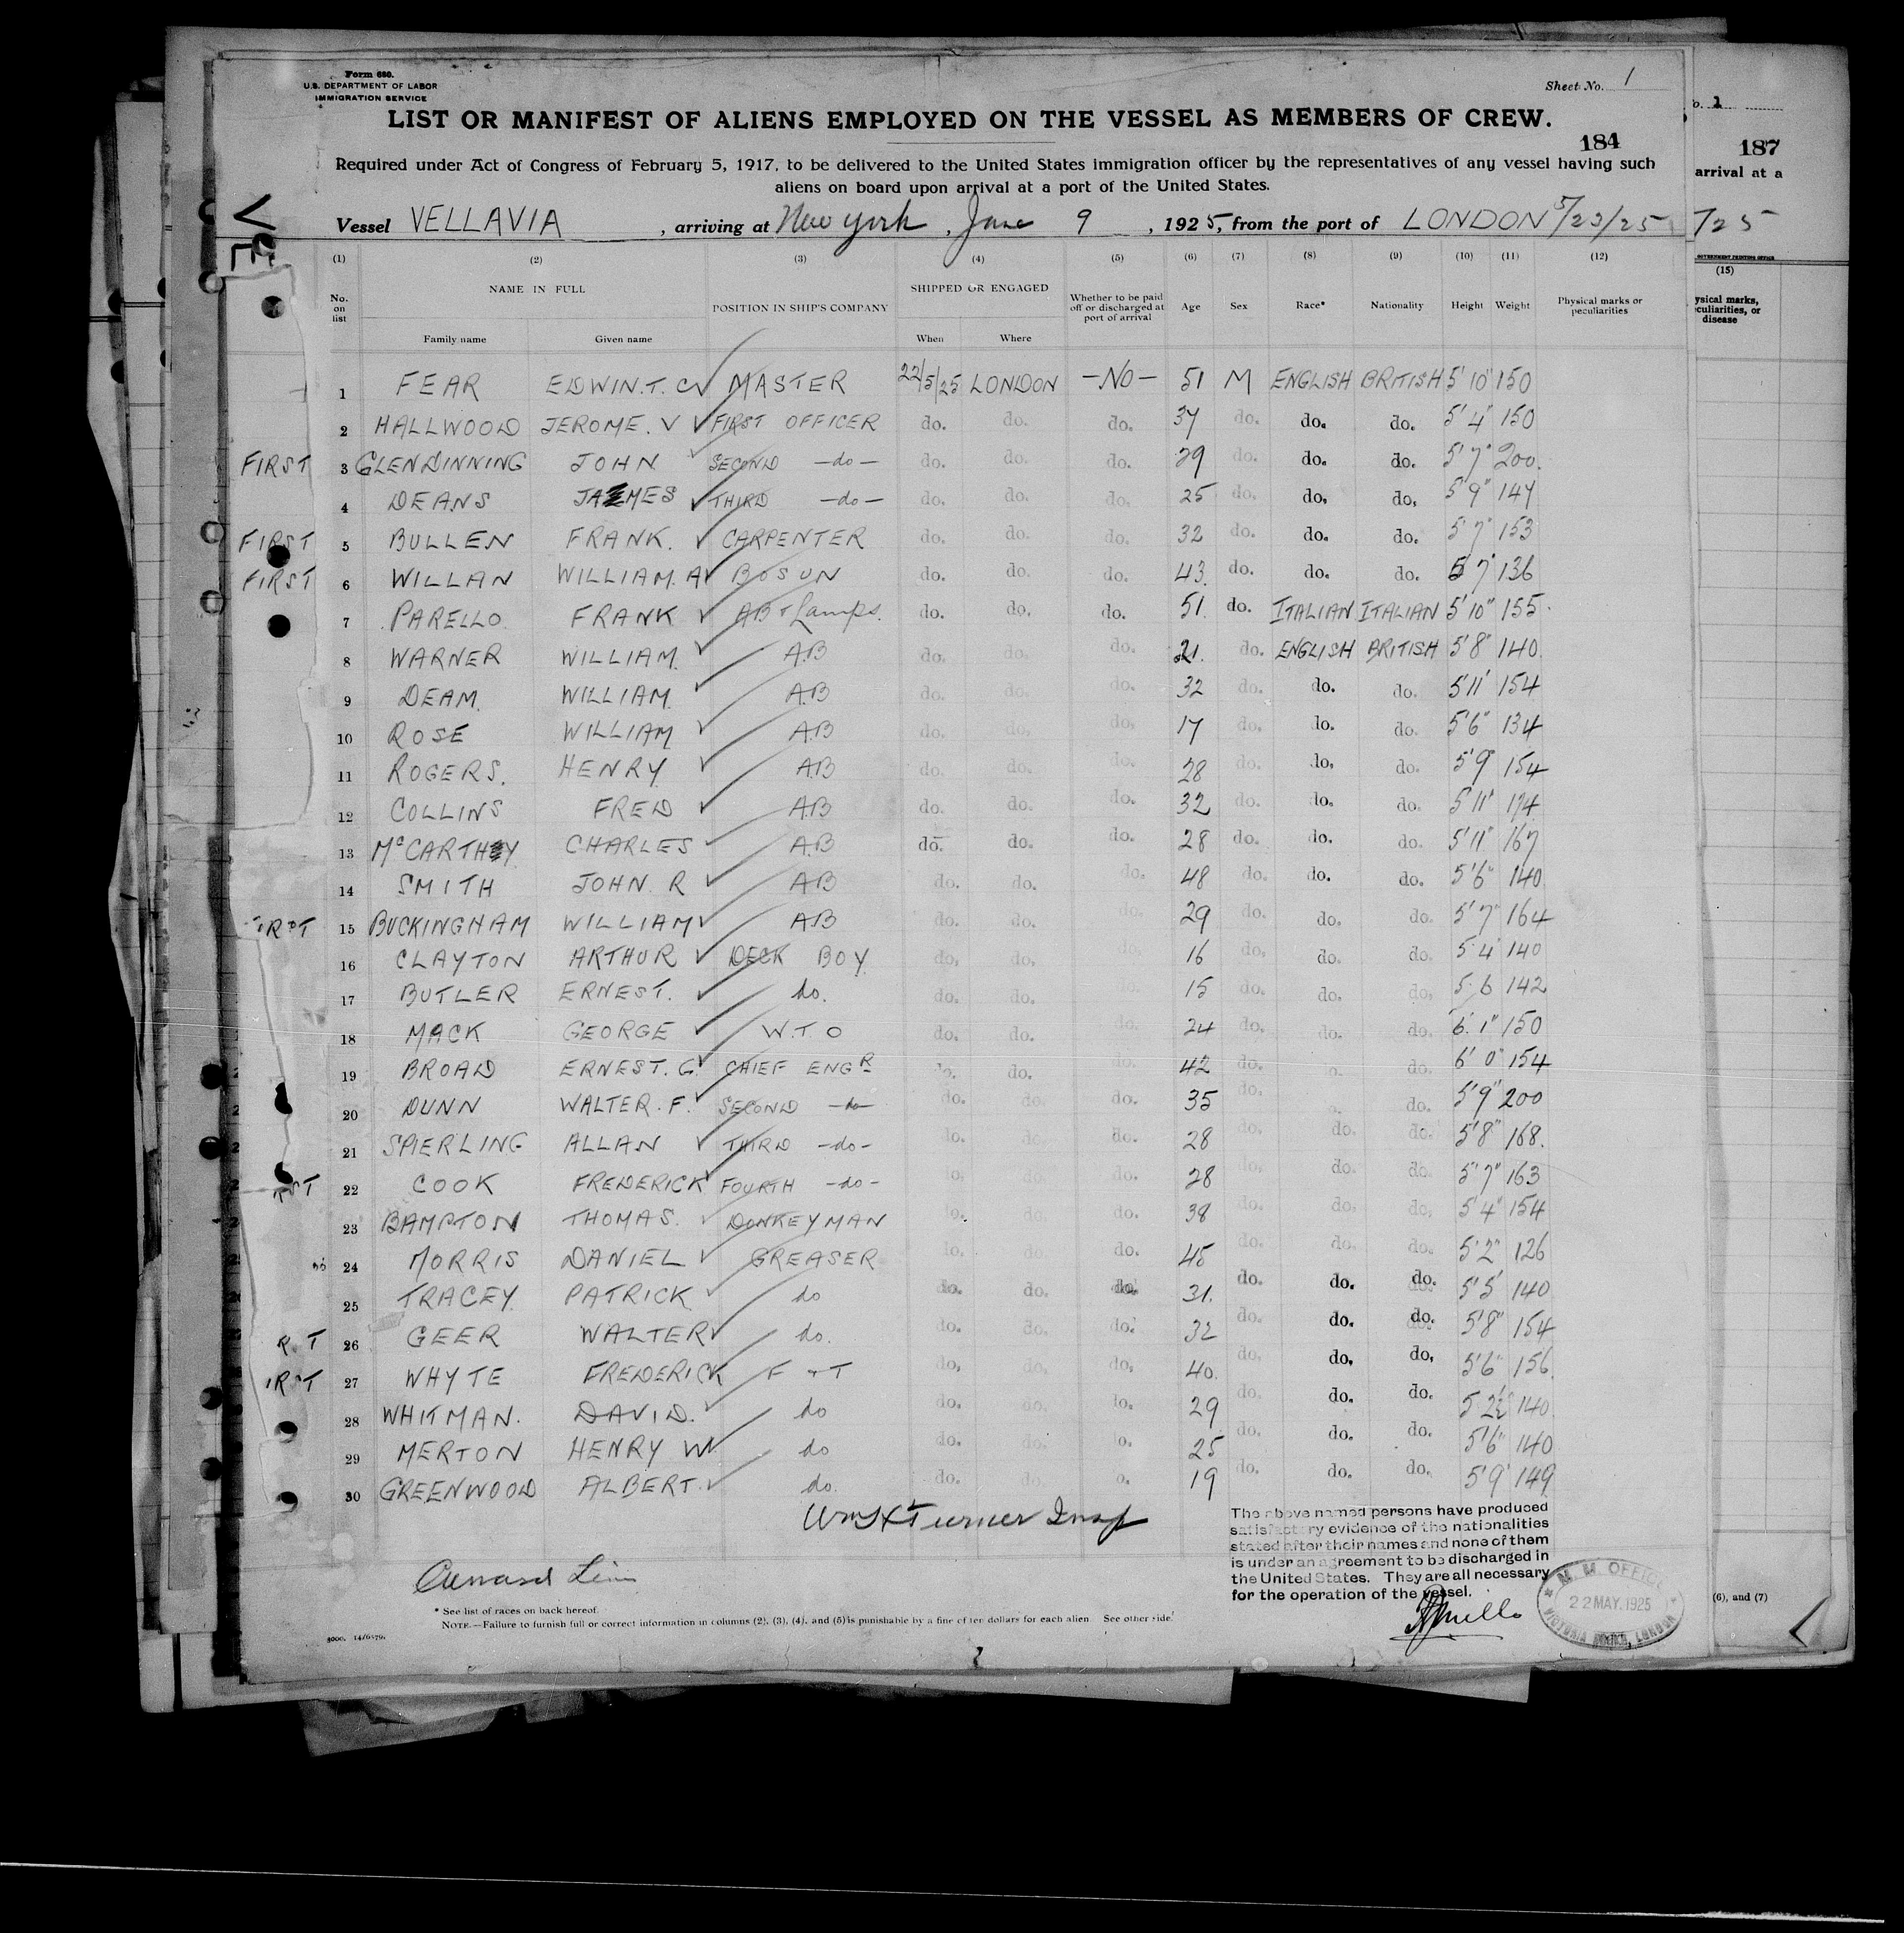 Form 680.
U.S. DEPARTMENT OF LABOR
IMMIGRATION SERVICE
Sheet No. 1
LIST OR MANIFEST OF ALIENS EMPLOYED ON THE VESSEL AS MEMBERS OF CREW.
184
187
Required under Act of Congress of February 5, 1917, to be delivered to the United States immigration officer by the representatives of any vessel having such
aliens on board upon arrival at a port of the United States.
arrival at a
Vessel VELLAVIA, arriving at New York, June 9, 1925, from the port of LONDON 5/23/25
(1) (2) (3) (4) (5) (6) (7) (8) (9) (10) (11) (12)
(15)
No. on list NAME IN FULL Family name Given name POSITION IN SHIP'S COMPANY SHIPPED OR ENGAGED When Where Whether to be paid off or discharged at port of arrival Age Sex Race* Nationality Height Weight Physical marks or peculiarities
1 FEAR EDWIN.T.C MASTER 22/5/25 LONDON —NO— 51 M ENGLISH BRITISH 5'10" 150
2 HALLWOOD JEROME. V FIRST OFFICER do. do. do. 37 do. do. do. 5'4" 150
FIRST 3 GLENDINNING JOHN SECOND —do— do. do. do. 29 do. do. do. 5'7" 200.
4 DEANS JAMES THIRD —do— do. do. do. 25 do. do. do. 5'9" 147
FIRST 5 BULLEN FRANK. CARPENTER do. do. do. 32 do. do. do. 5'7" 153
FIRST 6 WILLAN WILLIAM. A BOSUN do. do. do. 43. do. do. do. 5'7" 136
7 PARELLO FRANK AB + Lamps. do. do. do. 51. do. ITALIAN ITALIAN 5'10" 155
8 WARNER WILLIAM. A.B do. do. do. 21. do. ENGLISH BRITISH 5'8" 140.
9 DEAM. WILLIAM. A.B do. do. do. 32 do. do. do. 5'11" 154
10 ROSE WILLIAM A.B do. do. do. 17 do. do. do. 5'6" 134
11 ROGERS. HENRY A.B do. do. do. 28 do. do. do. 5'9" 154
12 COLLINS FRED A.B do. do. do. 32 do. do. do. 5'11" 174
13 McCARTHY CHARLES A.B do. do. do. 28 do. do. do. 5'11" 167
14 SMITH JOHN. R AB do. do. do. 48 do. do. do. 5'6" 140.
15 BUCKINGHAM WILLIAM AB do. do. do. 29 do. do. do. 5'7" 164
16 CLAYTON ARTHUR DECK BOY do. do. do. 16 do. do. do. 5 4 140
17 BUTLER ERNEST. do. do. do. do. 15 do. do. do. 5.6 142
18 MACK GEORGE W.T.O do. do. do. 24 do. do. do. 6'.1" 150
19 BROAD ERNEST. G. CHIEF ENGR do. do. do. 42 do. do. do. 6' 0" 154
20 DUNN WALTER. F. SECOND —do— do. do. do. 35 do. do. 5'9" 200
21 SPIERLING ALLAN THIRD —do— do. do. do. 28 do. do. do. 5'8" 168.
22 COOK FREDERICK FOURTH —do— do. do. do. 28 do. do. do. 5'7" 163
23 BAMPTON THOMAS. DONKEYMAN do. do. do. 38 do. do. do. 5'4" 154
24 MORRIS DANIEL GREASER do. do. do. 45 do. do. do. 5'2" 126
25 TRACEY PATRICK do do. do. do. 31. do. do. do. 5'5' 140
26 GEER WALTER do. do. do. do. 32 do. do. do. 5'8" 154
27 WHYTE FREDERICK F + T do. do. do. 40. do. do. do. 5'6" 156
28 WHITMAN. DAVID. do do. do. do. 29 do. do. do. 5 2½ 140
29 MERTON HENRY W do do. do. do. 25 do. do. do. 5'6" 140
30 GREENWOOD ALBERT. do. do. do. do. 19 do. do. do. 5'9' 149
Wm H Turner Insp
The above named persons have produced
satisfactory evidence of the nationalities
stated after their names and none of them
is under an agreement to be discharged in
the United States. They are all necessary
for the operation of the vessel.
Cunard Line
M. M. OFFICE
22 MAY. 1925
VICTORIA DOCK, LONDON
(6), and (7)
* See list of races on back hereof.
NOTE.—Failure to furnish full or correct information in columns (2), (3), (4), and (5) is punishable by a fine of ten dollars for each alien. See other side.